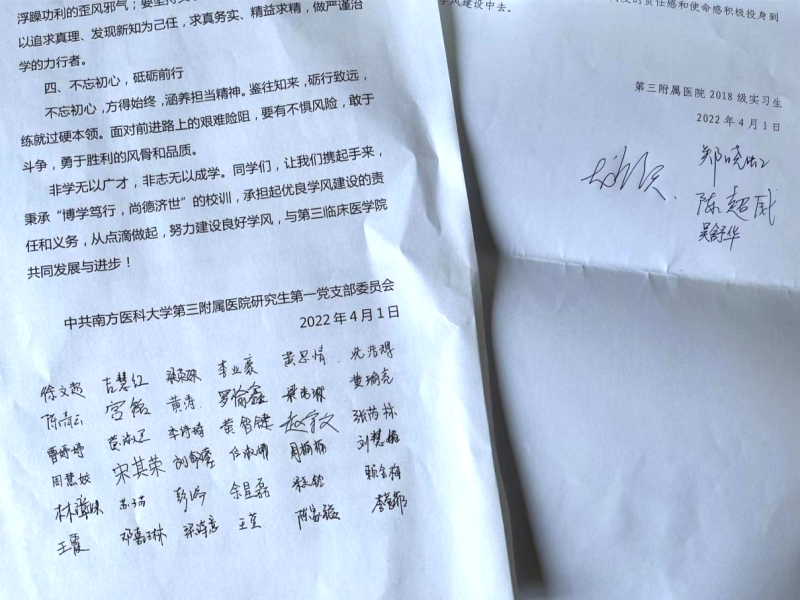 浮躁功利的歪风邪气；要坚持
以追求真理、发现新知为己任，求真务实、精益求精，做严谨治
学的力行者。
四、不忘初心，砥砺前行
不忘初心，方得始终，涵养担当精神。鉴往知来，砺行致远，
练就过硬本领。面对前进路上的艰难险阻，要有不惧风险，敢于
斗争，勇于胜利的风骨和品质。
非学无以广才，非志无以成学。同学们，让我们携起手来，
秉承“博学笃行，尚德济世”的校训，承担起优良学风建设的责
任和义务，从点滴做起，努力建设良好学风，与第三临床医学院
共同发展与进步！
中共南方医科大学第三附属医院研究生第一党支部委员会
2022年4月1日
徐文超 古慧红 李业豪 黄思情
宫磊 黄涛 罗愉鑫 黄瑜亮
曹婷婷 李诗琦 黄智键 赵宇文
周慧姣 宋其荣 刘慧敏
彭鸿 余星磊
王霞 邓嘉琳 王莹
的责任感和使命感积极投身到
学风建设中去。
第三附属医院2018级实习生
2022年4月1日
郑晓红
陈超威
吴舒华